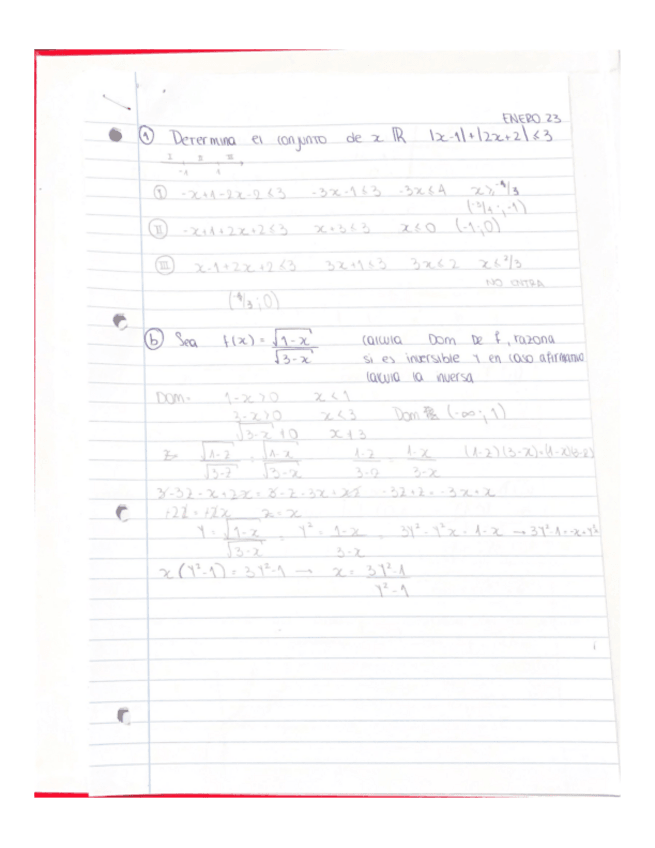 ENERO 23
① Determina el conjunto de x ℝ |x-1|+|2x+2|≤3
I II III
-1 1
Ⓘ -x+1-2x-2≤3 -3x-1≤3 -3x≤4 x≥-4/3
-1)
Ⓘⓘ -x+1+2x+2≤3 x+3≤3 x≤0 (-1;0)
Ⓘⓘⓘ x-1+2x+2≤3 3x+1≤3 3x≤2 x≤2/3
NO ENTRA
(-4/3;0)
ⓑ Sea f(x)=√1-x/√3-x calcula Dom De f, razona
si es inversible y en caso afirmativo
calcula la inversa
Dom= 1-x≥0 x≤1
3-x≥0 x≤3 Dom (-∞;1)
√3-x≠0 x≠3
√1-z/√3-z = √1-x/√3-x 1-z/3-z = 1-x/3-x (1-z)(3-x)=(1-x)(3-z)
3-3z-x+zx=3-z-3x+xz -3z+z=-3x+x
+2z=+2x z=x
Y=√1-x/√3-x = Y²=1-x/3-x = 3Y²-Y²x=1-x → 3Y²-1=-x+Y²
x(Y²-1)=3Y²-1 → x=3Y²-1/Y²-1